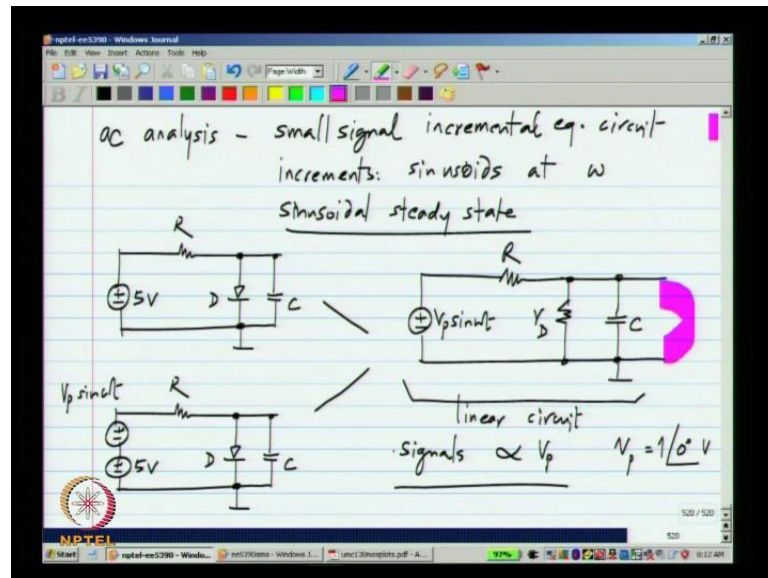 nptel-ee5390 - Windows Journal
File Edit View Insert Actions Tools Help
Page Width
B I
ac analysis - small signal incremental eq. circuit
increments: sinusoids at ω
sinusoidal steady state
R
5V
D
C
R
Vp sinωt
rD
C
Vp sinωt
R
5V
D
C
linear circuit
signals ∝ Vp Vp = 1∠0° V
520 / 520
520
NPTEL
Start nptel-ee5390 - Windo... ee5390sms - Windows J... umc130mosplots.pdf - A... 97% 8:12 AM